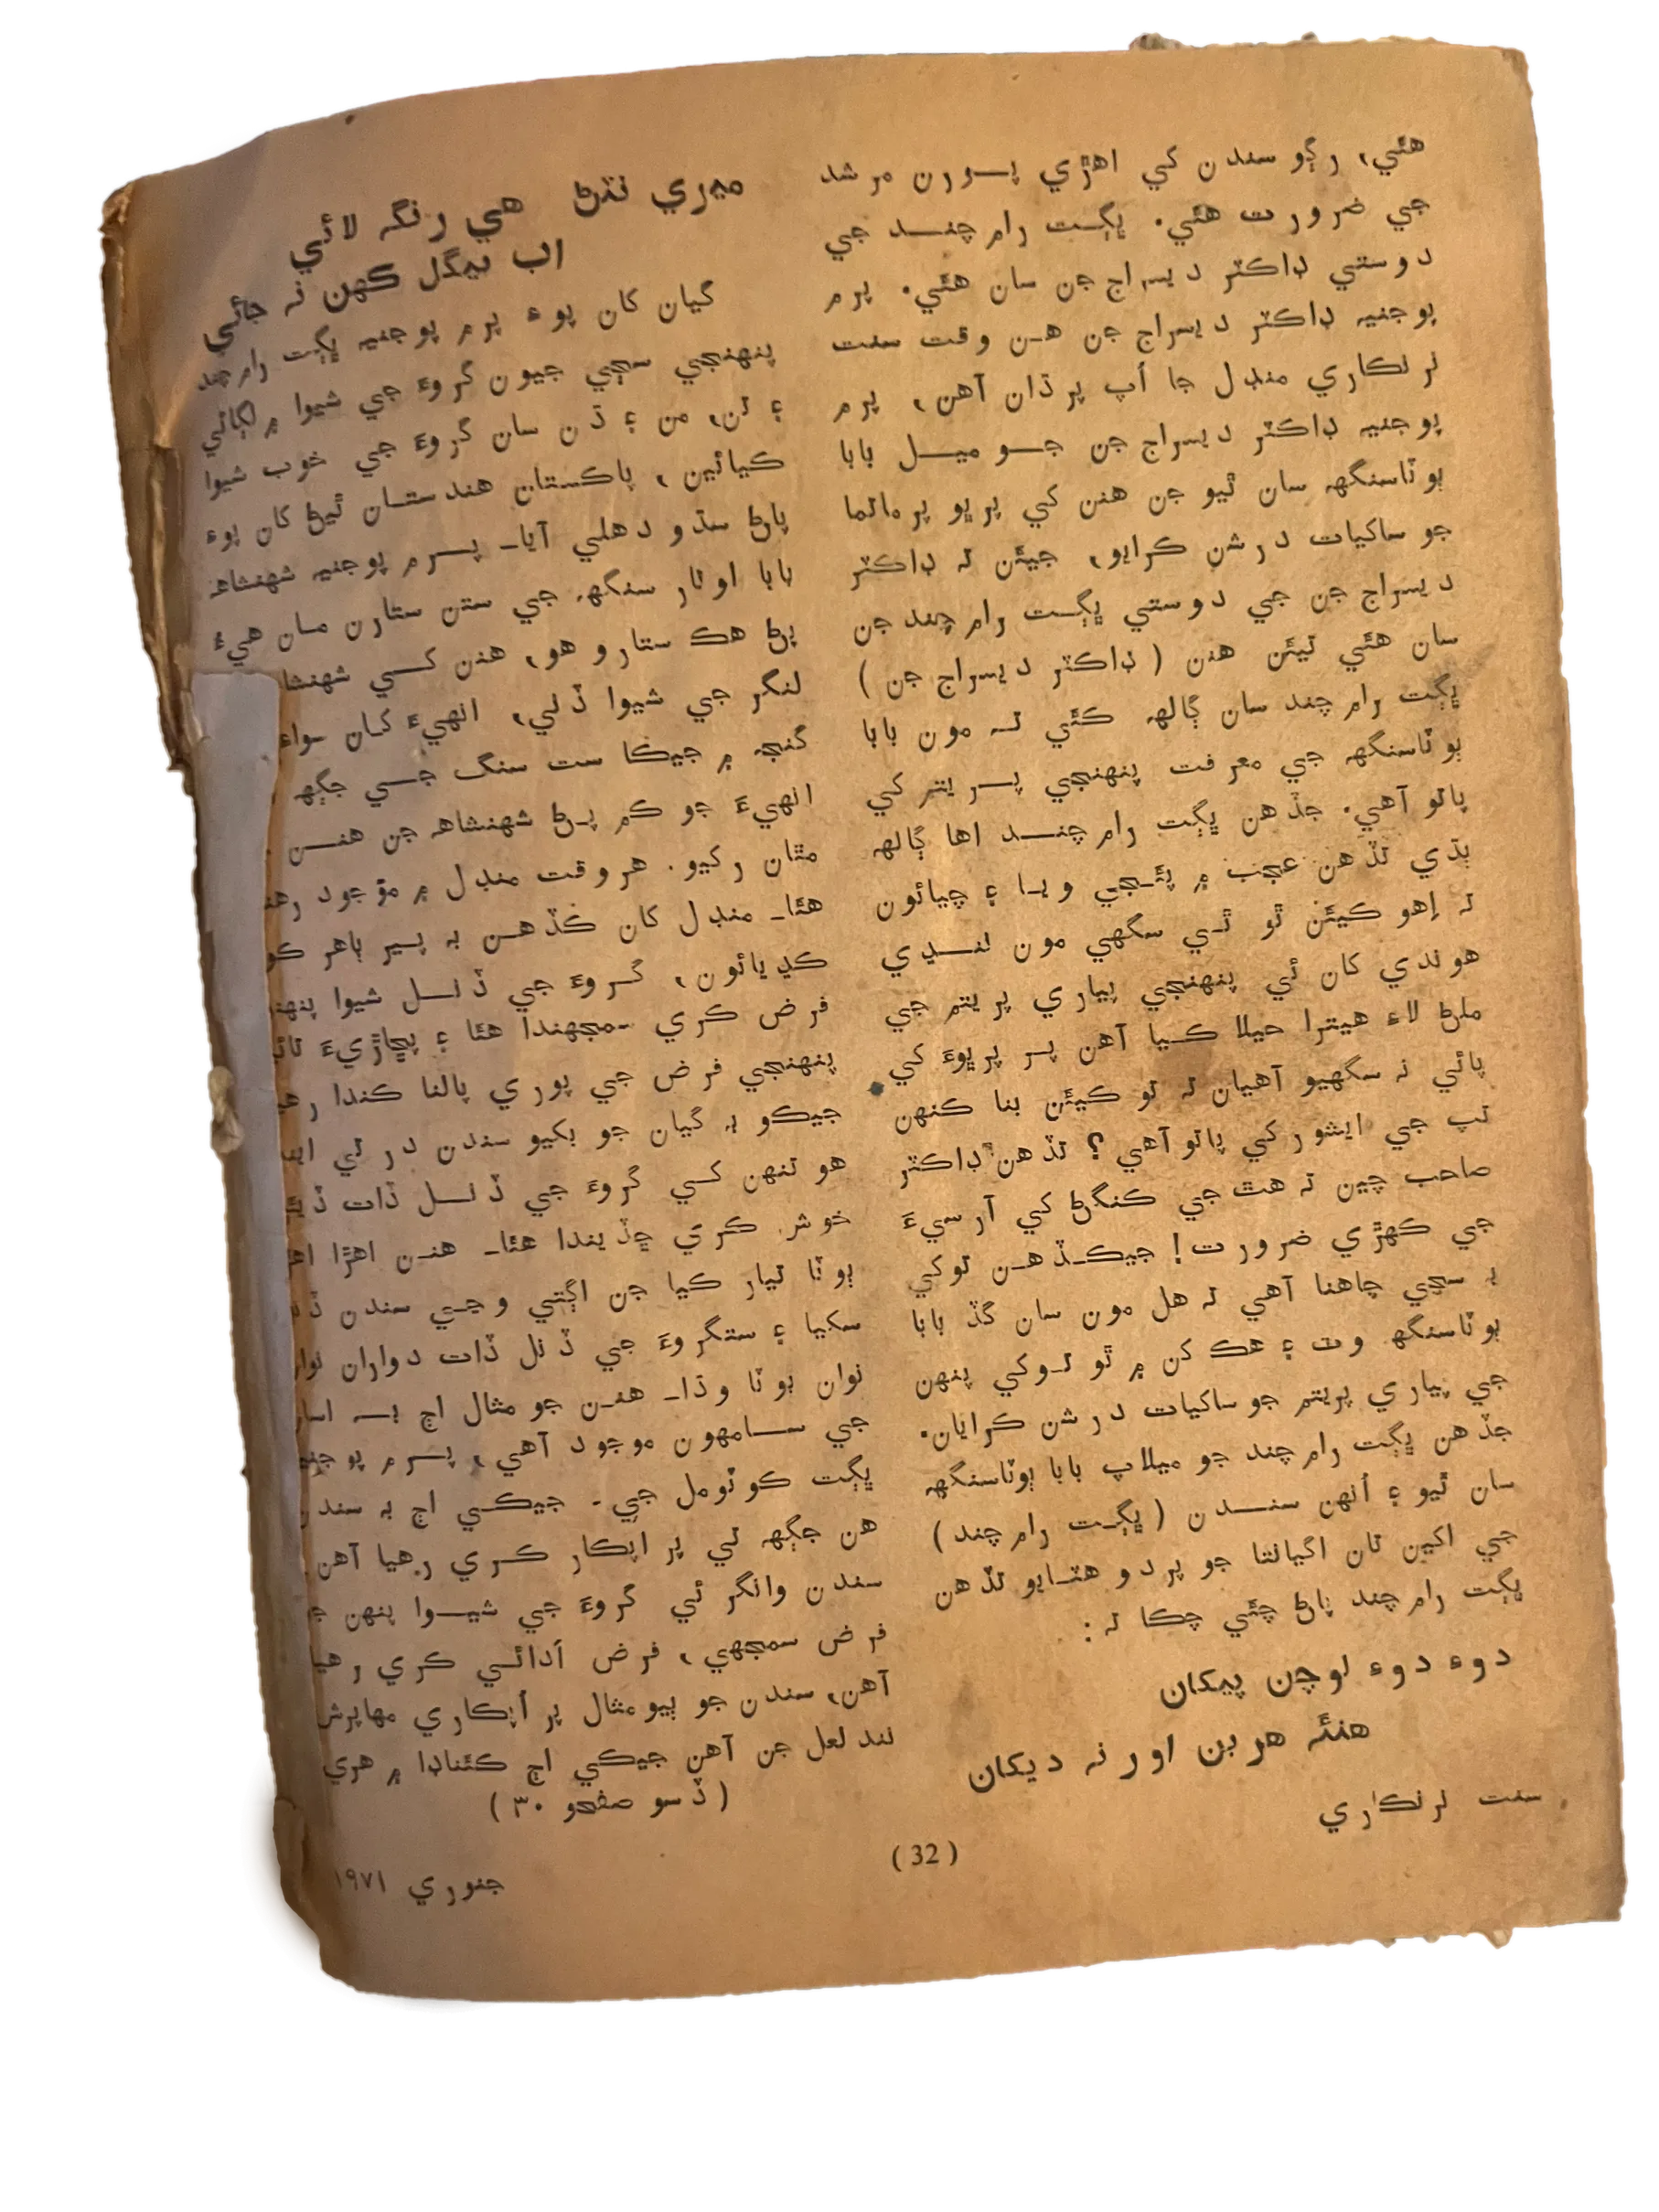 هئي، رڳو سندن کي اهڙي پورن مرشد
جي ضرورت هئي. ڀڳت رام چند جي
دوستي ڊاڪٽر ديسراج جن سان هئي. پرم
پوجنيه ڊاڪٽر ديسراج جن هن وقت سنت
نرنڪاري منڊل جا اُپ پرڌان آهن، پرم
پوجنيه ڊاڪٽر ديسراج جن جو ميل بابا
ٻوٽاسنگهه سان ٿيو جن هنن کي پرڀو پرماتما
جو ساکيات درشن ڪرايو، جيئن ته ڊاڪٽر
ديسراج جن جي دوستي ڀڳت رام چند جن
سان هئي تيئن هنن (ڊاڪٽر ديسراج جن)
ڀڳت رام چند سان ڳالهه ڪئي ته مون بابا
ٻوٽاسنگهه جي معرفت پنهنجي پريتم کي
پاتو آهي. جڏهن ڀڳت رام چند اها ڳالهه
ٻڌي تڏهن عجب ۾ پئجي ويا ۽ چيائون
ته اِهو ڪيئن ٿو ٿي سگهي مون ننڍي
هوندي کان ئي پنهنجي پياري پريتم جي
ملڻ لاءِ هيترا حيلا ڪيا آهن پر پرڀوءَ کي
پائي نه سگهيو آهيان ته تو ڪيئن بنا ڪنهن
تپ جي ايشور کي پاتو آهي؟ تڏهن ڊاڪٽر
صاحب چين ته هٿ جي ڪنگڻ کي آرسيءَ
جي ڪهڙي ضرورت! جيڪڏهن توکي
به سچي چاهنا آهي ته هل مون سان گڏ بابا
ٻوٽاسنگهه وٽ ۽ هڪ کن ۾ ٿو توکي پنهن
جي پياري پريتم جو ساکيات درشن ڪرايان.
جڏهن ڀڳت رام چند جو ميلاپ بابا ٻوٽاسنگهه
سان ٿيو ۽ اُنهن سندن (ڀڳت رام چند)
جي اکين تان اگيانتا جو پردو هٽايو تڏهن
ڀڳت رام چند پاڻ چئي چڪا ته:
دوءِ دوءِ لوچن پيکان
هنئه هر بن اور نه ديکان
سنت نرنڪاري
ميري نئڻ هي رنگه لائي
اب بيگل ڪهن نه جائي
گيان کان پوءِ پرم پوجنيه ڀڳت رام چند
پنهنجي سڄي جيون گروءَ جي شيوا ۾ لڳائي
۽ تن، من ۽ ڌن سان گروءَ جي خوب شيوا
ڪيائين، پاڪستان هندستان ٿيڻ کان پوءِ
پاڻ سڌو دهلي آيا۔ پرم پوجنيه شهنشاهه
بابا اوتار سنگهه جي ستن ستارن مان هيءُ
پڻ هڪ ستارو هو، هنن کي شهنشا
لنگر جي شيوا ڏني، انهيءَ کان سواءِ
گنج ۾ جيڪا ست سنگ جي جڳهه
انهيءَ جو ڪم پڻ شهنشاهه جن هنن
مٿان رکيو. هر وقت منڊل ۾ موجود رهند
هئا۔ منڊل کان ڪڏهن به پير ٻاهر ڪو
ڪڍيائون، گروءَ جي ڏنل شيوا پنهن
فرض ڪري سمجهندا هئا ۽ پڇاڙيءَ تائين
پنهنجي فرض جي پوري پالنا ڪندا رهيا
جيڪو به گيان جو بکيو سندن در تي ايند
هو تنهن کي گروءَ جي ڏنل ڏات ڏيئي
خوش ڪري ڇڏيندا هئا۔ هنن اهڙا اهڙ
ٻوٽا تيار ڪيا جن اڳتي وڃي سندن ڏن
سکيا ۽ ستگروءَ جي ڏنل ڏات دواران نوان
نوان ٻوٽا وڌا۔ هنن جو مثال اڄ به اسان
جي سامهون موجود آهي، پرم پوجنيه
ڀڳت ڪوٽومل جي. جيڪي اڄ به سندن
هن جڳهه تي پر اپڪار ڪري رهيا آهن
سندن وانگر ئي گروءَ جي شيوا پنهن جو
فرض سمجهي، فرض اَدائي ڪري رهيا
آهن، سندن جو ٻيو مثال پر اُپڪاري مهاپرش
نند لعل جن آهن جيڪي اڄ ڪئناڊا ۾ هري
(ڏسو صفحو ۳۰)
(32)
جنوري ۱۹۷۱